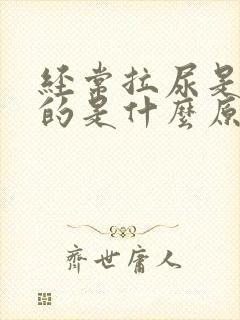 经常拉尿是
的是什麼原
齊世庸人